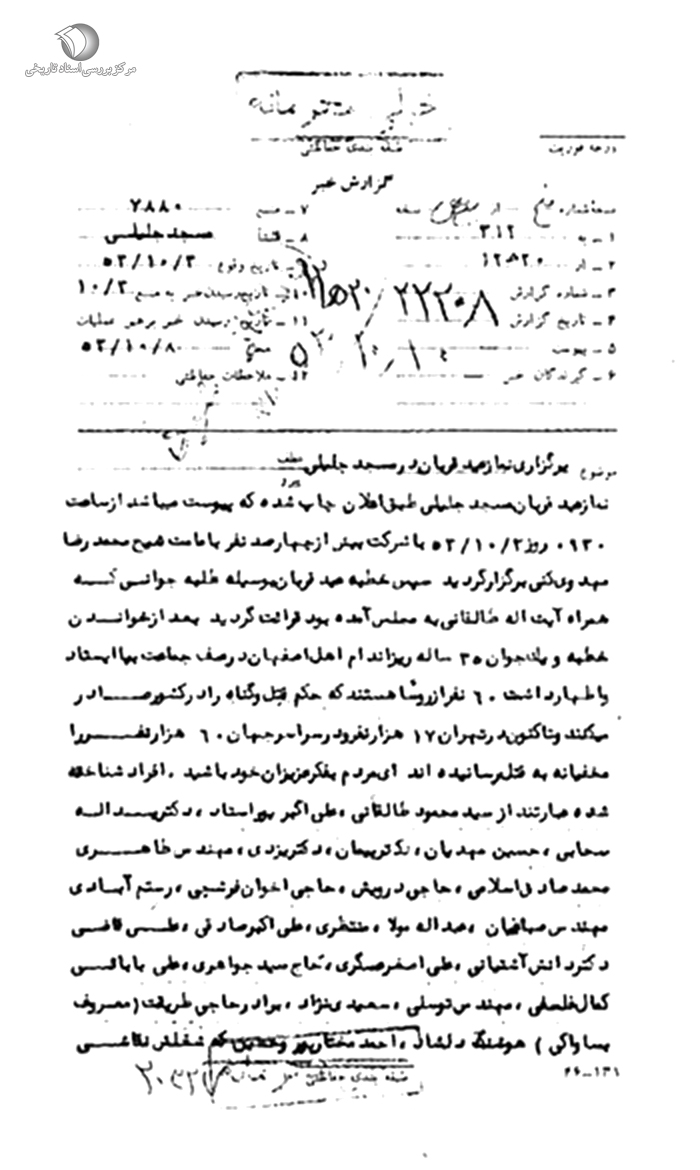 مرکز بررسی اسناد تاریخی
خیلی محرمانه
درجه فوریت
طبقه بندی حفاظتی
گزارش خبر
نسخه شماره از نسخه
۱ـ به ۳۱۲
۲ـ از ۱۲هـ۲۰
۳ـ شماره گزارش ۲۲۲۰۸ / ۱۲هـ۲۰
۴ـ تاریخ گزارش
۵ـ پیوست
۶ـ گیرندگان خبر
۷ـ منبع ۷۸۸۰
۸ـ منشأ مسجد جلیلی
۹ـ تاریخ وقوع ۵۳/۱۰/۲
۱۰ـ تاریخ رسیدن خبر به منبع ۱۰/۲
۱۱ـ تاریخ رسیدن خبر به رهبر عملیات
محلی ۵۳/۱۰/۸
۱۲ـ ملاحظات حفاظتی
موضوع برگزاری نماز عید قربان در مسجد جلیلی
نماز عید قربان مسجد جلیلی طبق اعلان چاپ شده که پیوست میباشد از ساعت
۰۹۳۰ روز ۵۳/۱۰/۲ با شرکت بیش از چهارصد نفر با مامت شیخ محمد رضا
مهدوی کنی برگزار گردید سپس خطبه عید قربان بوسیله طلبه جوانی که
همراه آیت اله طالقانی به مجلس آمده بود قرائت گردید بعد از خواندن
خطبه و یک جوان ۳۵ ساله ریز اندام اهل اصفهان در صف جماعت بپا ایستاد
و اظهار داشت ۶۰ نفر از روسا هستند که حکم قتل و گناه را در کشور صادر
میکنند و تاکنون در تهران ۱۷ هزار نفر و در سراسر جهان ۶۰ هزار نفر را
مخفیانه به قتل رسانیده اند ای مردم بفکر عزیزان خود باشید . افراد شناخته
شده عبارتند از سید محمود طالقانی ، علی اکبر پور استاد ، دکتر یداله
سحابی ، حسین مهدیان ، دکتر پیمان ، دکتر یزدی ، مهندس طاهری
محمد صادق اسلامی ، حاجی درویش ، حاجی اخوان فرشچی ، رستم آبادی
مهندس صباغیان ، عبداله مولا ، منتظری ، علی اکبر صادقی ، علی قاضی
دکتر دانش آشتیانی ، علی اصغر عسگری ، حاج سید جواهری ، علی بابائی
کمال فلسفی ، مهندس توسلی ، سعیدی نژاد ، برادر حاجی طریقت ( معروف
بساواکی ) هوشنگ دلشاد ، احمد مختارپور که شغلش نقاشی
طبقه بندی حفاظتی
۲۰۳۲
۲۶-۱۳۱